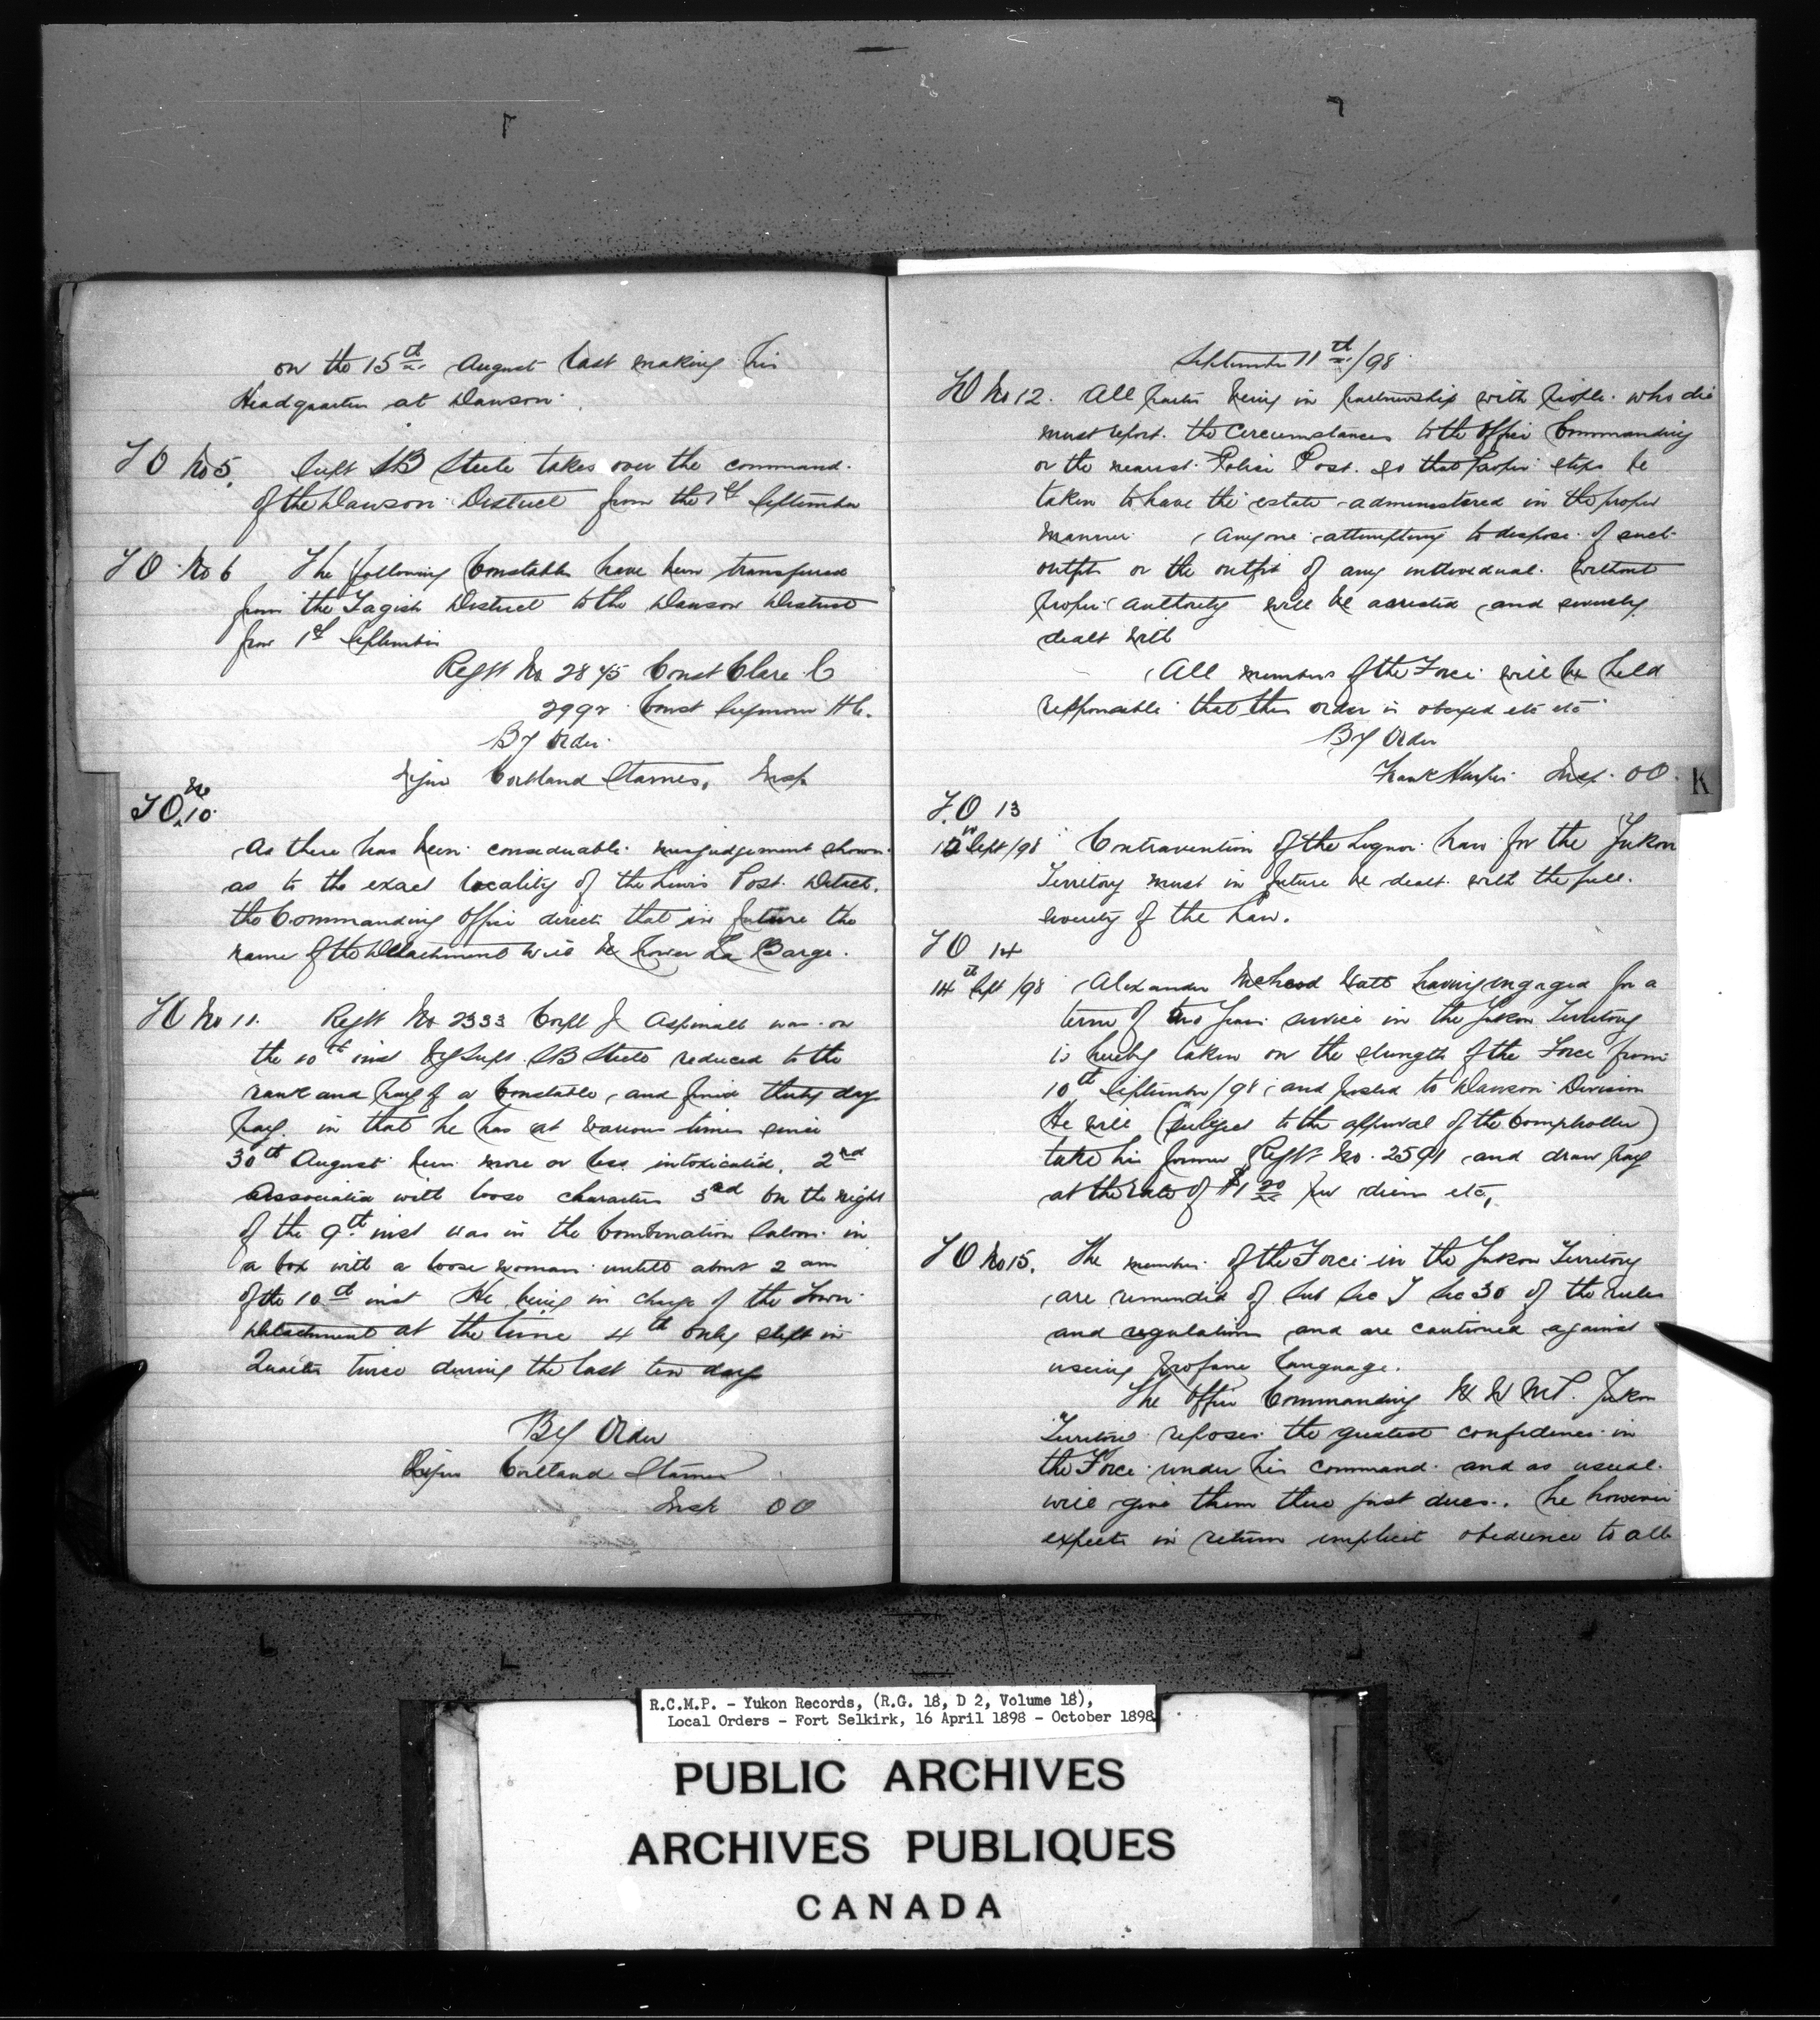 on the 15th August last making his
Headquarters at Dawson.
T O No 5. Supt SB Steele takes over the command
of the Dawson District from the 1st September
T O No 6 The following Constables have been transferred
from the Tagish District to the Dawson District
from 1st September
Regtl No 2845 Const Clare C
2992 Const Seymour H C.
By Order
Cortland Starnes, Insp
T O No 10
As there has been considerable misjudgement shown
as to the exact locality of the Lewis Post Detach.
the Commanding Officer directs that in future the
name of the Detachment will be Lower La Barge.
T O No 11. Regtl No 2333 Corpl J Aspinall was on
the 10th inst by Supt SB Steele reduced to the
rank and pay of a Constable, and fined thirty days
pay. in that he has at various times since
30th August been more or less intoxicated. 2nd
Associated with loose characters 3rd On the night
of the 9th inst was in the Combination Saloon in
a box with a loose woman untill about 2 am
of the 10th inst He being in charge of the Town
Detachment at the time 4th only slept in
twice during the last ten days
By Order
Cortland Starnes
Insp O O
September 11th/98
T O No 12. All parties being in partnership with people who die
must report the circumstances to the Officer Commanding
or the nearest Police Post. so that proper steps be
taken to have the estate administered in the proper
manner. Anyone attempting to dispose of such
outfits or the outfit of any individual without
proper authority will be arrested and severely
dealt with
All members of the Force will be held
responsible that this order is obeyed etc etc
By Order
Frank Harper Insp. O O.
K
T.O 13
12th Sept/98 Contravention of the Liquor Laws for the Yukon
Territory must in future be dealt with the full
severity of the Law.
T O 14
14th Sept/98 Alexander McLeod Watt having engaged for a
term of two years service in the Yukon Territory
is hereby taken on the strength of the Force from
10th September/98 and posted to Dawson Division
He will (subject to the approval of the Comptroller)
take his former Regtl No. 2591 and draw pay
at the rate of $1 per diem etc,
T O No 15. The members of the Force in the Yukon Territory
are reminded of Sub Sec J Sec 30 of the rules
and regulations and are cautioned against
useing profane language.
The Officer Commanding N W M P. Yukon
Territory reposes the greatest confidence in
the Force under his command and as usual
will give them their just dues. he however
expects in return implicit obedience to all
R.C.M.P. - Yukon Records, (R.G. 18, D 2, Volume 18),
Local Orders - Fort Selkirk, 16 April 1898 - October 1898
PUBLIC ARCHIVES
ARCHIVES PUBLIQUES
CANADA